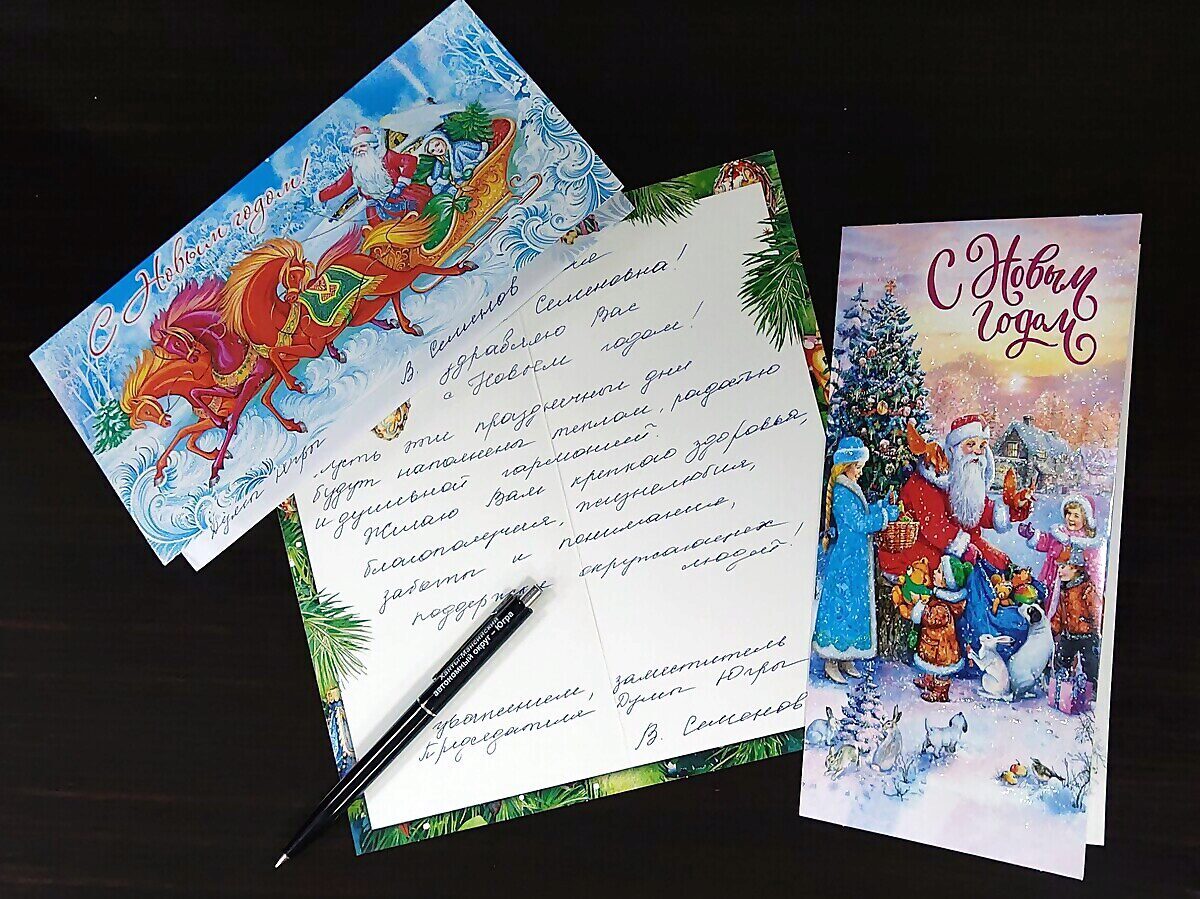 С Новым годом!
В. Семенов
Думы Югры
Семеновна!
здравляю Вас
с Новым годом!
Пусть эти праздничные дни
будут наполнены теплом, радостью
и душевной гармонией.
Желаю Вам крепкого здоровья,
благополучия, жизнелюбия,
заботы и понимания,
поддержки окружающих
людей!
уважением, заместитель
Председателя Думы Югры
В. Семенов
Ханты-Мансийский
автономный округ – Югра
С Новым
годом